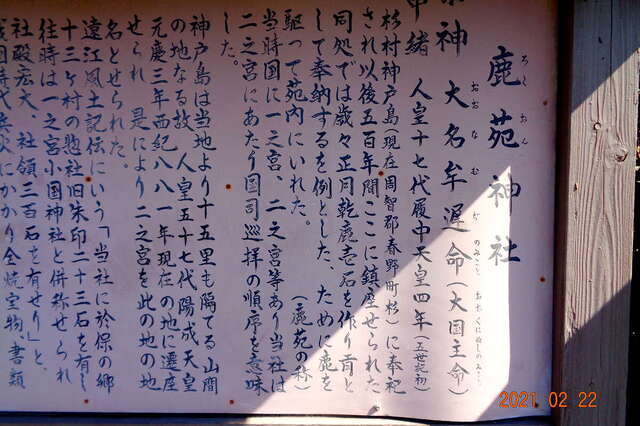 鹿苑神社
ろくおん
祭神 大名牟遅命(大国主命)
おおなむちのみこと おおくにぬしのみこと
由緒 人皇十七代履中天皇四年(五世紀初)
杉村神戸島(現在周智郡春野町杉)に奉祀
され以後五百年間ここに鎮座せられた
同処では歳々正月乾鹿壱石を作り首と
して奉納するを例とした、ために鹿を
駆って苑内にいれた。 (鹿苑の称)
当時国に一之宮、二之宮等あり当社は
二之宮にあたり国司巡拝の順序を意味
した。
神戸島は当地より十五里も隔てる山間
の地なる故 人皇五十七代陽成天皇
元慶三年西紀八八一年現在の地に遷座
せられ 是により二之宮を此の地の地
名とせられた。
遠江風土記伝にいう「当社に於保の郷
十三ヶ村の惣社旧朱印二十三石を有し
往時は一之宮小國神社と併称せられ
社殿宏大、社領三百石を有せり」と、
戦国時代兵火にかかり全焼宝物書類
2021 02 22